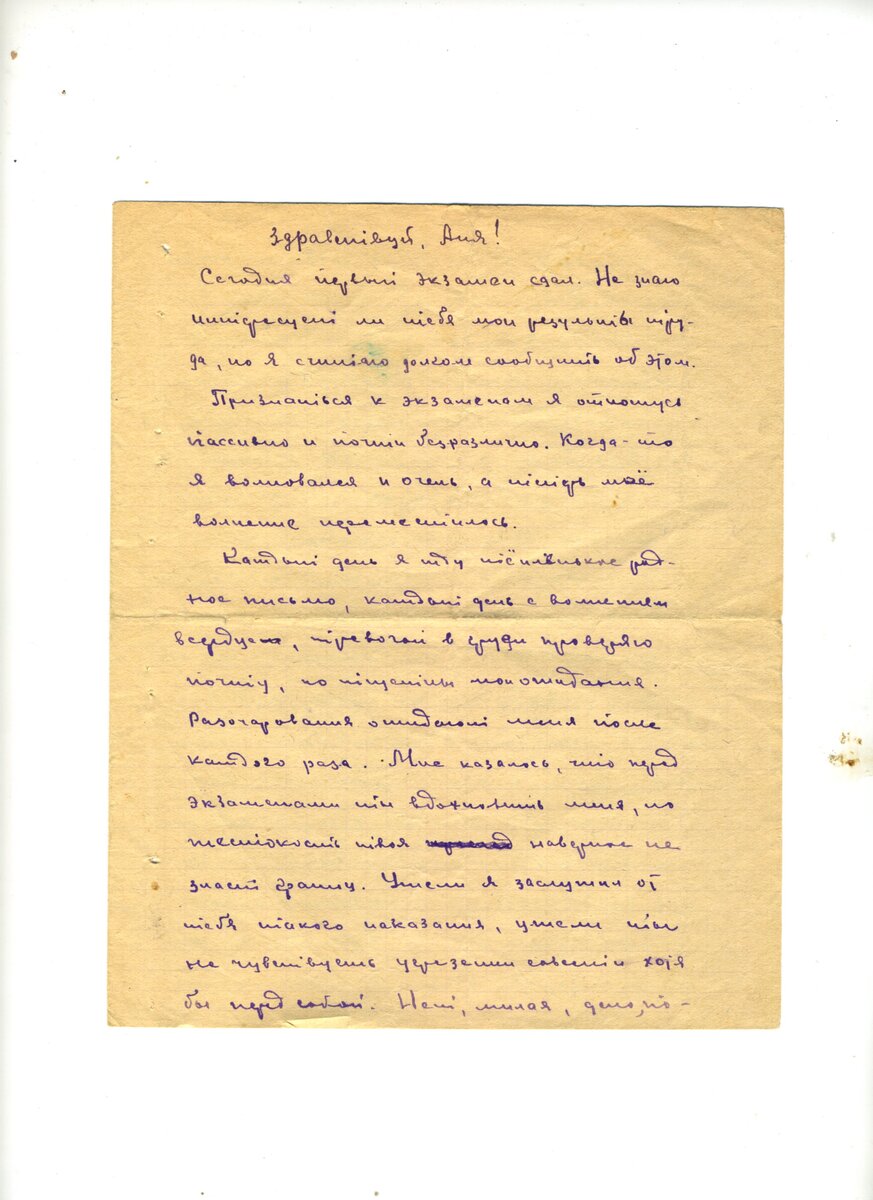 Здравствуй, Аня!
Сегодня первый экзамен сдал. Не знаю
интересуют ли тебя мои результы тру-
да, но я считаю долгом сообщить об этом.
Признаться к экзаменам я отношусь
пассивно и почти безразлично. Когда-то
я волновался и очень, а теперь моё
волнение переместилось.
Каждый день я жду тёпленькое род-
ное письмо, каждый день с волнением
в сердцем, тревогой в груди проверяю
почту, но тщетны мои ожидания.
Разочарования ожидают меня после
каждого раза. Мне казалось, что перед
экзаменами ты вдохновишь меня, но
жестокость твоя наверное не
знает границ. Ужели я заслужил от
тебя такого наказания, ужели ты
не чувствуешь угрезении совести хотя
бы перед собой. Нет, милая,